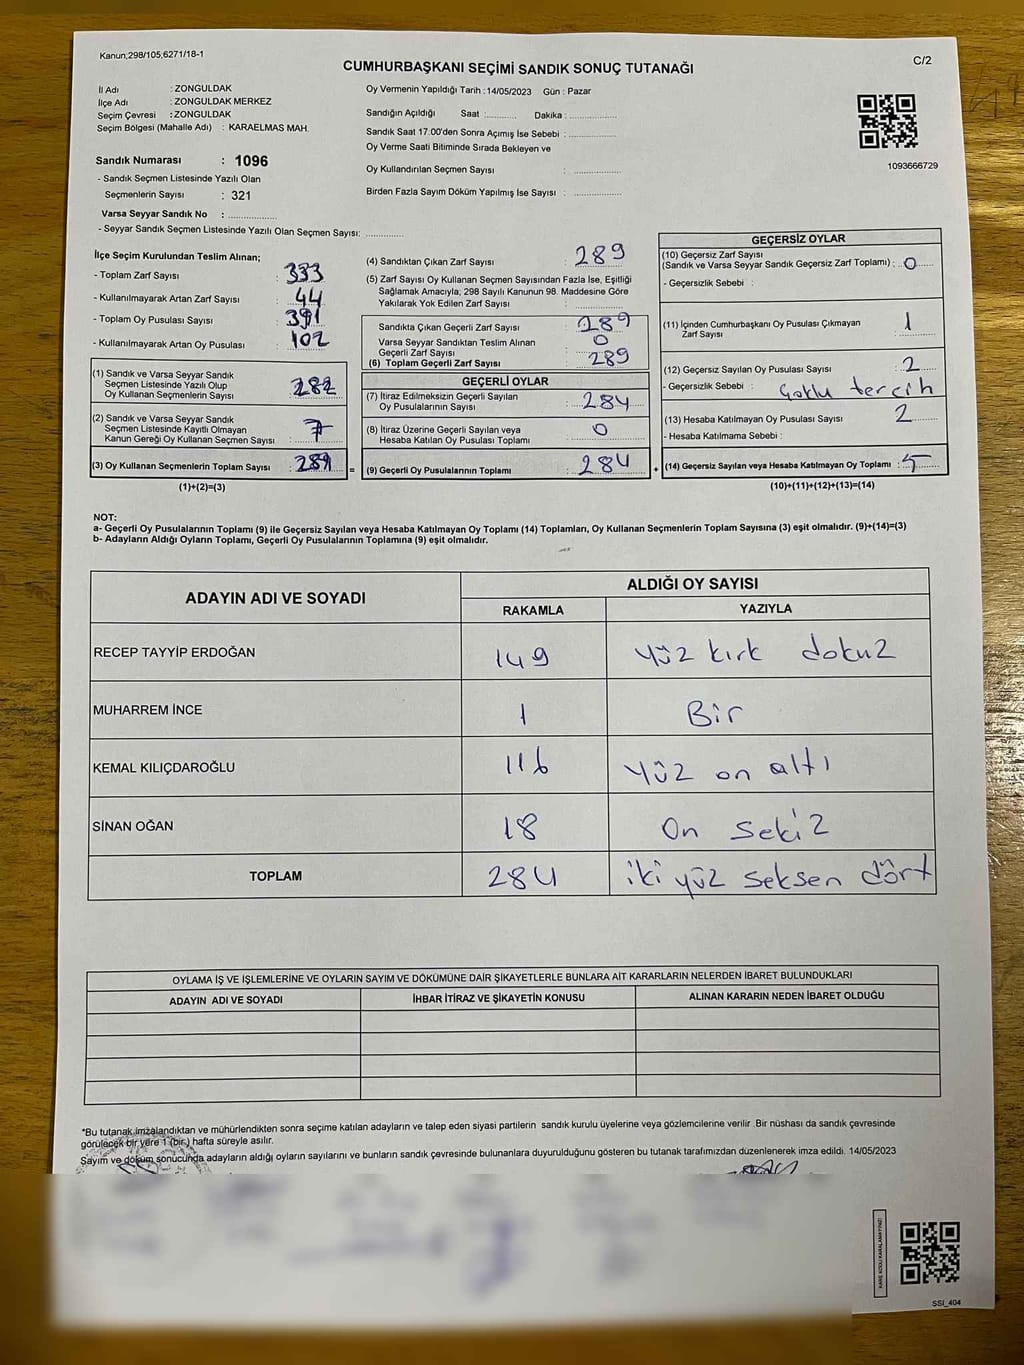 Kanun;298/105;6271/18-1
C/2
CUMHURBAŞKANI SEÇİMİ SANDIK SONUÇ TUTANAĞI
İl Adı : ZONGULDAK
İlçe Adı : ZONGULDAK MERKEZ
Seçim Çevresi : ZONGULDAK
Seçim Bölgesi (Mahalle Adı) : KARAELMAS MAH.
Sandık Numarası : 1096
- Sandık Seçmen Listesinde Yazılı Olan
Seçmenlerin Sayısı : 321
Varsa Seyyar Sandık No :
- Seyyar Sandık Seçmen Listesinde Yazılı Olan Seçmen Sayısı:
Oy Vermenin Yapıldığı Tarih : 14/05/2023 Gün : Pazar
Sandığın Açıldığı Saat : Dakika :
Sandık Saat 17.00'den Sonra Açımış İse Sebebi :
Oy Verme Saati Bitiminde Sırada Bekleyen ve
Oy Kullandırılan Seçmen Sayısı :
Birden Fazla Sayım Döküm Yapılmış İse Sayısı :
1093666729
İlçe Seçim Kurulundan Teslim Alınan;
- Toplam Zarf Sayısı : 333
- Kullanılmayarak Artan Zarf Sayısı : 44
- Toplam Oy Pusulası Sayısı : 391
- Kullanılmayarak Artan Oy Pusulası : 102
(1) Sandık ve Varsa Seyyar Sandık
Seçmen Listesinde Yazılı Olup
Oy Kullanan Seçmenlerin Sayısı : 282
(2) Sandık ve Varsa Seyyar Sandık
Seçmen Listesinde Kayıtlı Olmayan
Kanun Gereği Oy Kullanan Seçmen Sayısı : 7
(3) Oy Kullanan Seçmenlerin Toplam Sayısı : 289 =
(1)+(2)=(3)
(4) Sandıktan Çıkan Zarf Sayısı : 289
(5) Zarf Sayısı Oy Kullanan Seçmen Sayısından Fazla İse, Eşitliği
Sağlamak Amacıyla; 298 Sayılı Kanunun 98. Maddesine Göre
Yakılarak Yok Edilen Zarf Sayısı :
Sandıkta Çıkan Geçerli Zarf Sayısı : 289
Varsa Seyyar Sandıktan Teslim Alınan
Geçerli Zarf Sayısı : 0
(6) Toplam Geçerli Zarf Sayısı : 289
GEÇERLİ OYLAR
(7) İtiraz Edilmeksizin Geçerli Sayılan
Oy Pusulalarının Sayısı : 284
(8) İtiraz Üzerine Geçerli Sayılan veya
Hesaba Katılan Oy Pusulası Toplamı : 0
(9) Geçerli Oy Pusulalarının Toplamı : 284 +
GEÇERSİZ OYLAR
(10) Geçersiz Zarf Sayısı
(Sandık ve Varsa Seyyar Sandık Geçersiz Zarf Toplamı) : 0
- Geçersizlik Sebebi :
(11) İçinden Cumhurbaşkanı Oy Pusulası Çıkmayan
Zarf Sayısı : 1
(12) Geçersiz Sayılan Oy Pusulası Sayısı : 2
- Geçersizlik Sebebi : Çoklu tercih
(13) Hesaba Katılmayan Oy Pusulası Sayısı : 2
- Hesaba Katılmama Sebebi :
(14) Geçersiz Sayılan veya Hesaba Katılmayan Oy Toplamı : 5
(10)+(11)+(12)+(13)=(14)
NOT:
a- Geçerli Oy Pusulalarının Toplamı (9) ile Geçersiz Sayılan veya Hesaba Katılmayan Oy Toplamı (14) Toplamları, Oy Kullanan Seçmenlerin Toplam Sayısına (3) eşit olmalıdır. (9)+(14)=(3)
b- Adayların Aldığı Oyların Toplamı, Geçerli Oy Pusulalarının Toplamına (9) eşit olmalıdır.
ADAYIN ADI VE SOYADI
ALDIĞI OY SAYISI
RAKAMLA YAZIYLA
RECEP TAYYİP ERDOĞAN 149 Yüz kırk dokuz
MUHARREM İNCE 1 Bir
KEMAL KILIÇDAROĞLU 116 Yüz on altı
SİNAN OĞAN 18 On sekiz
TOPLAM 284 iki yüz seksen dört
OYLAMA İŞ VE İŞLEMLERİNE VE OYLARIN SAYIM VE DÖKÜMÜNE DAİR ŞİKAYETLERLE BUNLARA AİT KARARLARIN NELERDEN İBARET BULUNDUKLARI
ADAYIN ADI VE SOYADI İHBAR İTİRAZ VE ŞİKAYETİN KONUSU ALINAN KARARIN NEDEN İBARET OLDUĞU
*Bu tutanak imzalandıktan ve mühürlendikten sonra seçime katılan adayların ve talep eden siyasi partilerin sandık kurulu üyelerine veya gözlemcilerine verilir .Bir nüshası da sandık çevresinde
görülecek bir yere 1 (bir ) hafta süreyle asılır.
Sayım ve döküm sonucunda adayların aldığı oyların sayılarını ve bunların sandık çevresinde bulunanlara duyurulduğunu gösteren bu tutanak tarafımızdan düzenlenerek imza edildi. 14/05/2023
KARE KODU KARALAMAYINIZ!
SSI_404